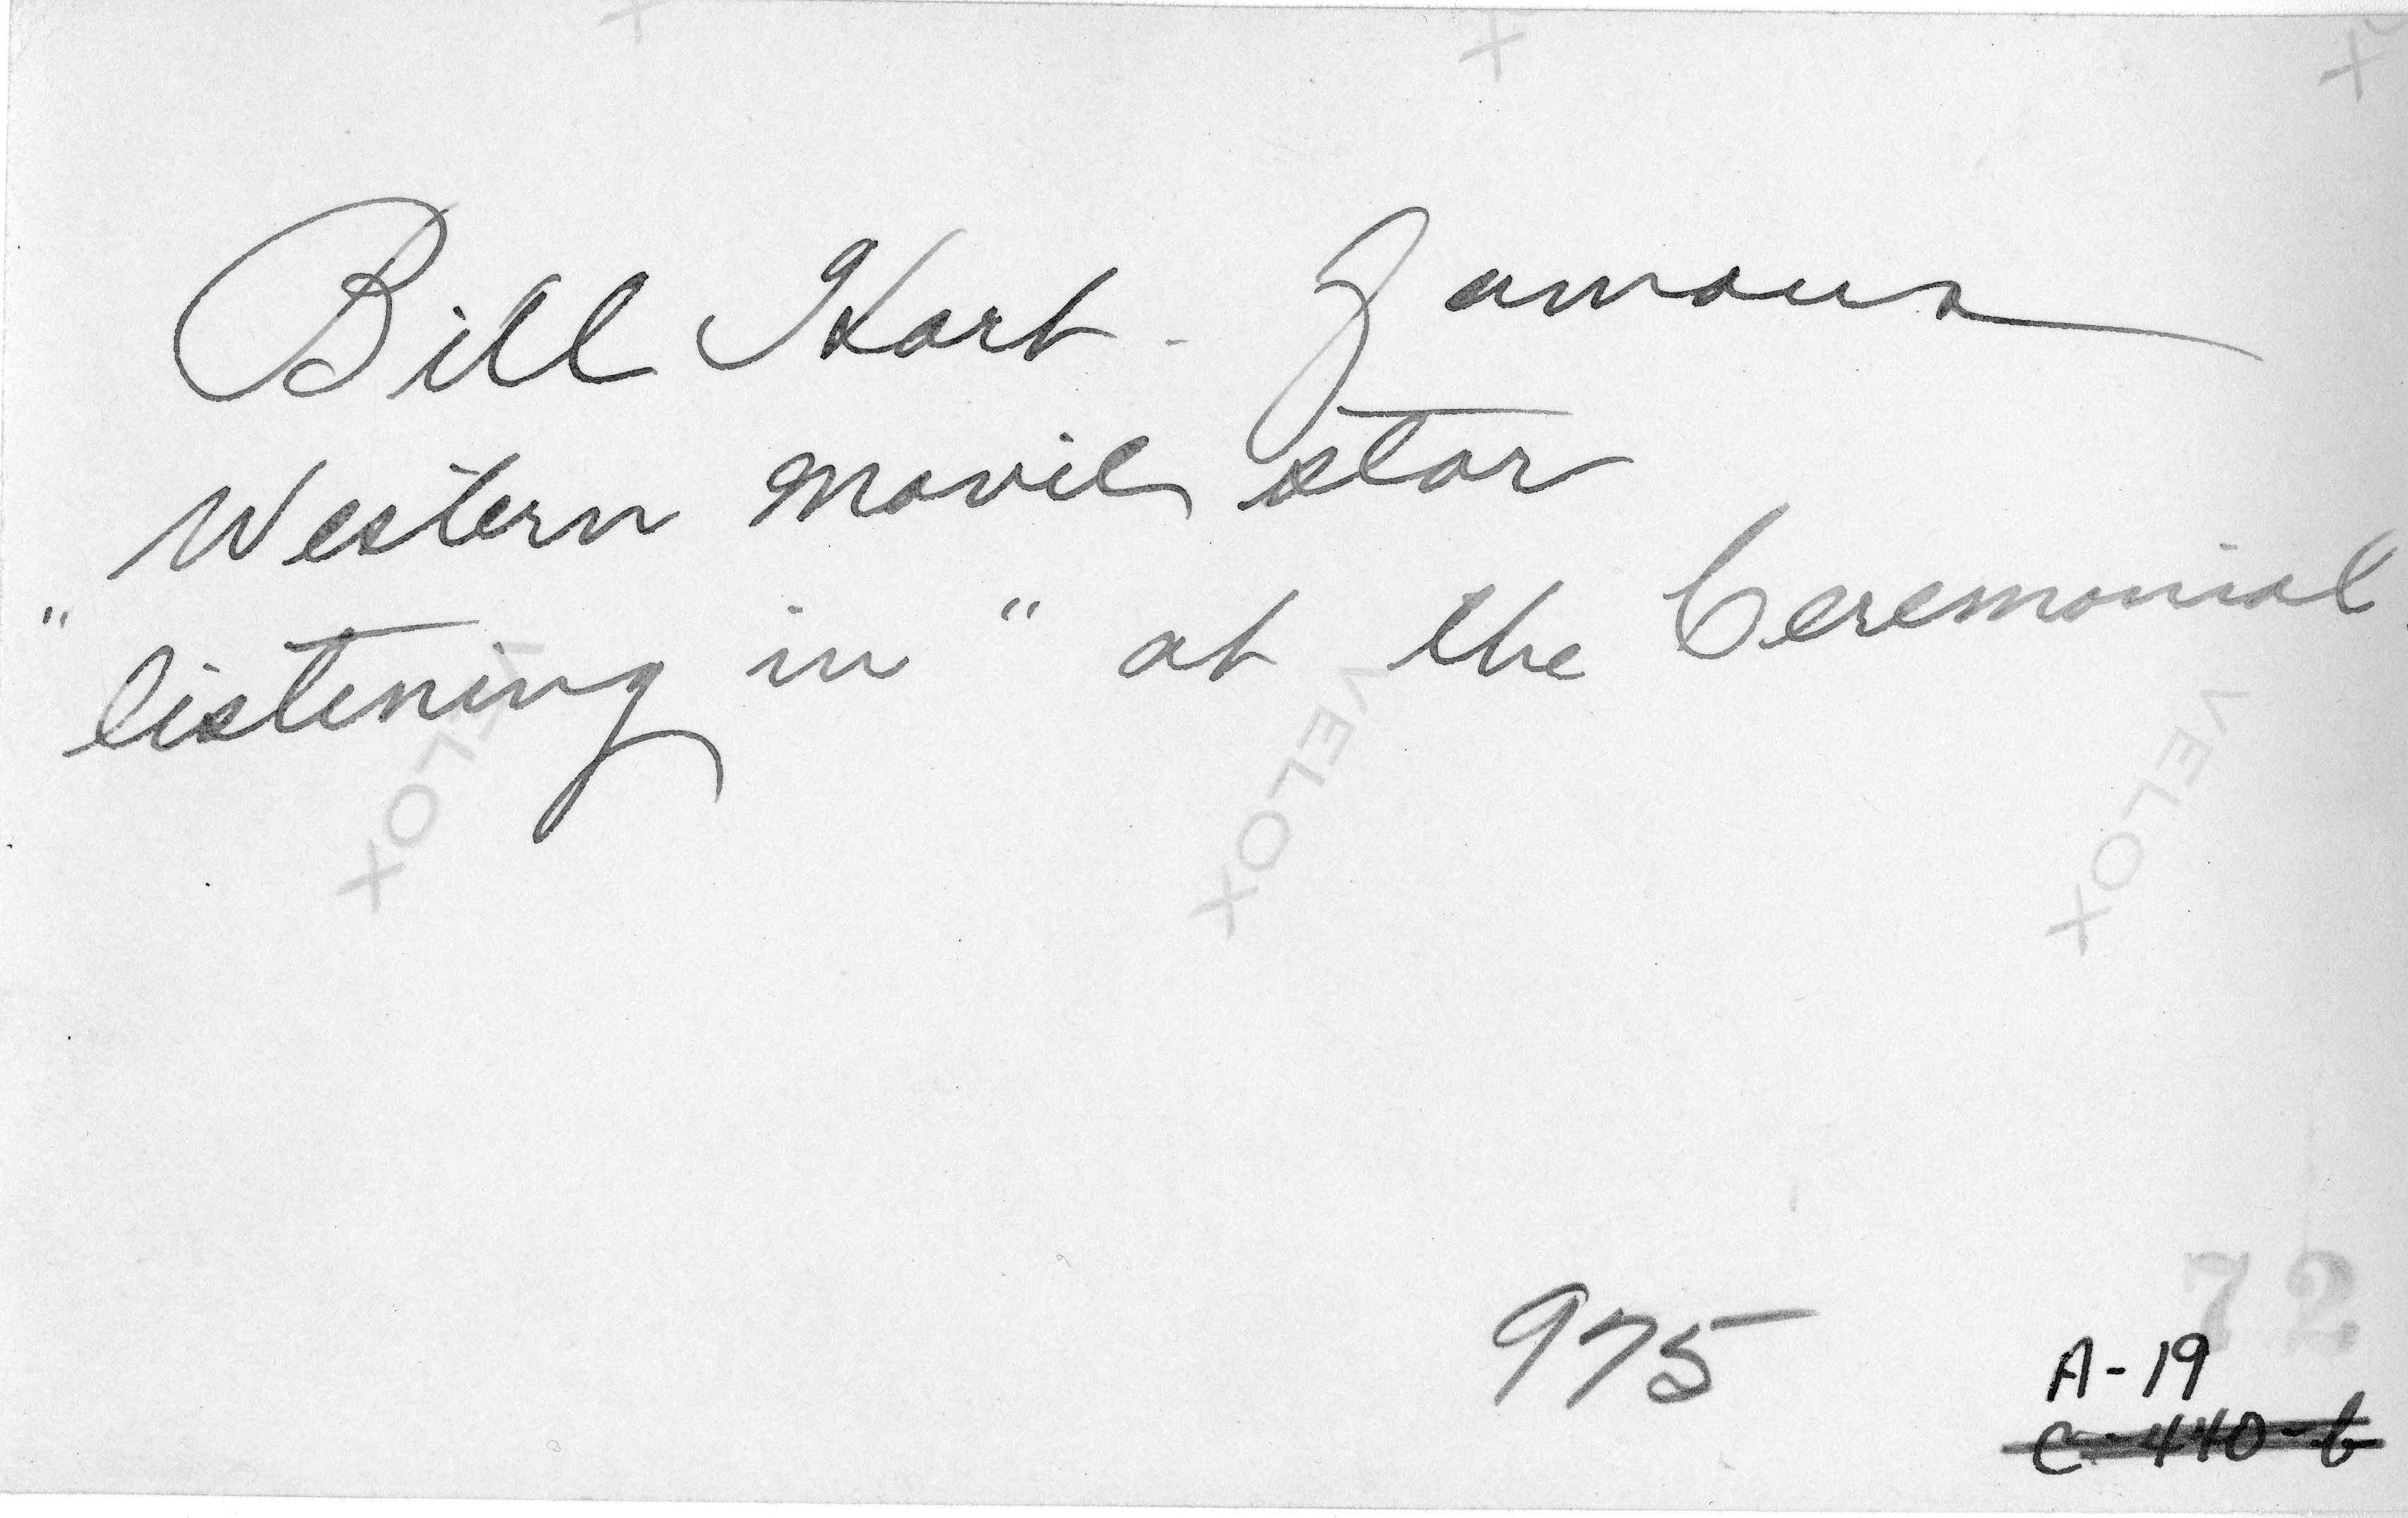 Bill Hart - Famous
Western movie star
"listening in" at the Ceremonial.
VELOX VELOX VELOX
975
72
A-19
C-440-b